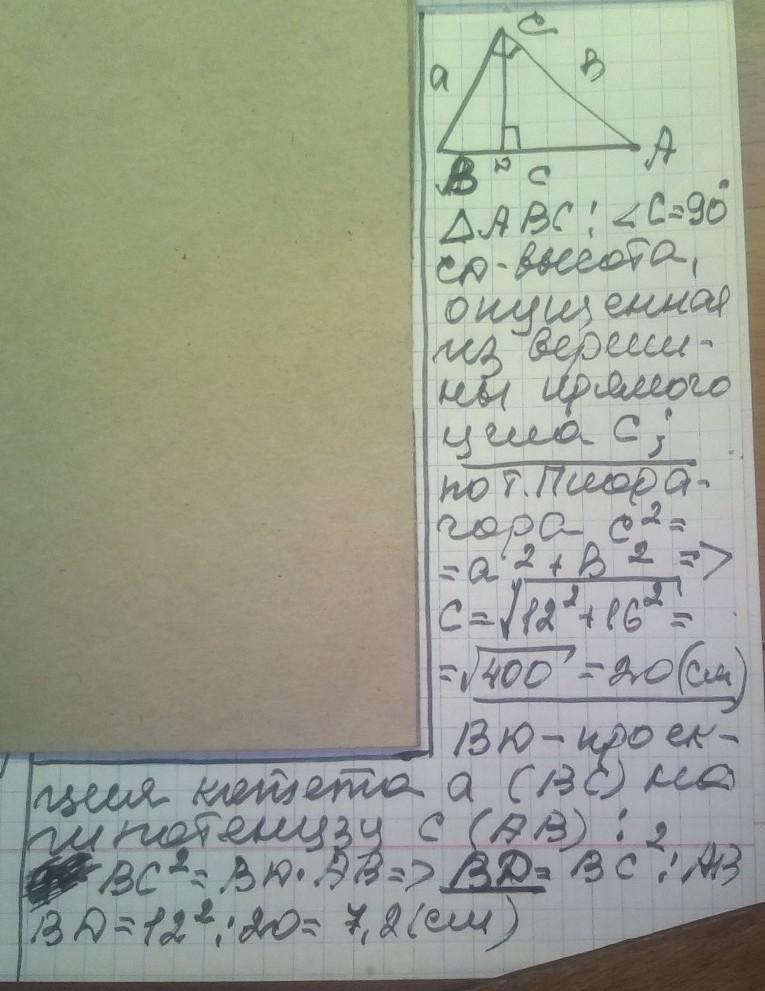 C
a B
B D C A
△ABC: ∠C=90°
CD-высота,
опущенная
из верши-
ны прямого
угла C;
по т. Пифа-
гора c²=
=a²+B² =>
C=√12²+16²=
=√400=20(см)
BD-проек-
ция катета a (BC) на
гипотенузу C (AB):
BC²=BD·AB=> BD=BC²:AB
BD=12²:20=7,2(см)